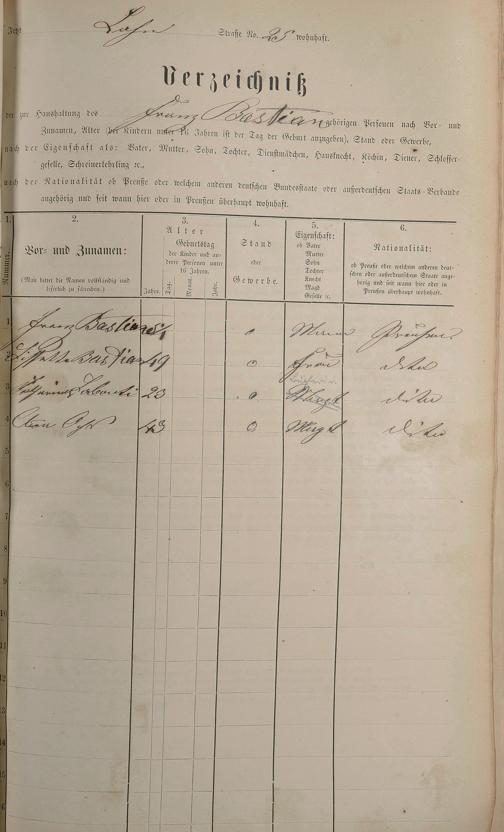 Jetzt Lahn Straße No. 25 wohnhaft.
Verzeichniß
der zur Haushaltung des Franz Bastian gehörigen Personen nach Vor- und
Zunamen, Alter (bei Kindern unter 16 Jahren ist der Tag der Geburt anzugeben), Stand oder Gewerbe,
nach der Eigenschaft als: Vater, Mutter, Sohn, Tochter, Dienstmädchen, Hausknecht, Köchin, Diener, Schlosser-
geselle, Schreinerlehrling ec.,
nach der Nationalität ob Preuße oder welchem anderen deutschen Bundesstaate oder außerdeutschen Staats-Verbande
angehörig und seit wann hier oder in Preußen überhaupt wohnhaft.
1.
Nummer.
2.
Vor- und Zunamen:
(Man bittet die Namen vollständig und
leserlich zu schreiben.)
3.
Alter
Geburtstag
der Kinder und an-
derer Personen unter
16 Jahren.
Jahre. Tag. Monat. Jahr.
4.
Stand
oder
Gewerbe.
5.
Eigenschaft:
ob Vater
Mutter
Sohn
Tochter
Knecht
Magd
Geselle ec.
6.
Nationalität:
ob Preuße oder welchem anderen deut-
schen oder außerdeutschem Staate ange-
hörig und seit wann hier oder in
Preußen überhaupt wohnhaft.
1 Franz Bastian o
2 Bastian 49 o Frau dito
3 23 o Magd dito
4 43 o Magd dito
5
6
7
8
9
10
11
12
13
14
15